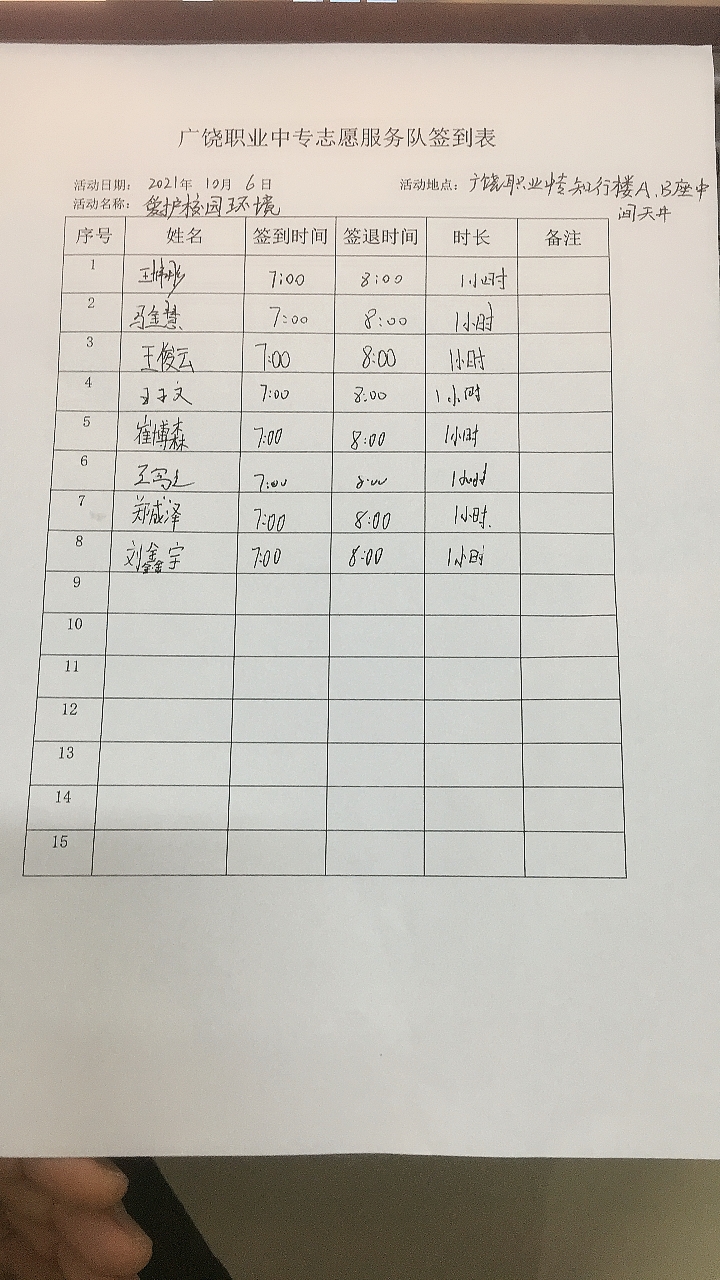 广饶职业中专志愿服务队签到表
活动日期： 2021年 10月 6日 活动地点：广饶职业中专知行楼A、B座中
间天井
活动名称： 爱护校园环境
序号 姓名 签到时间 签退时间 时长 备注
1 7:00 8:00 1小时
2 马金慧 7:00 8:00 1小时
3 王俊云 7:00 8:00 1小时
4 7:00 8:00 1小时
5 崔博森 7:00 8:00 1小时
6 7:00 8:00 1小时
7 郑成泽 7:00 8:00 1小时.
8 刘鑫宇 7:00 8:00 1小时
9
10
11
12
13
14
15